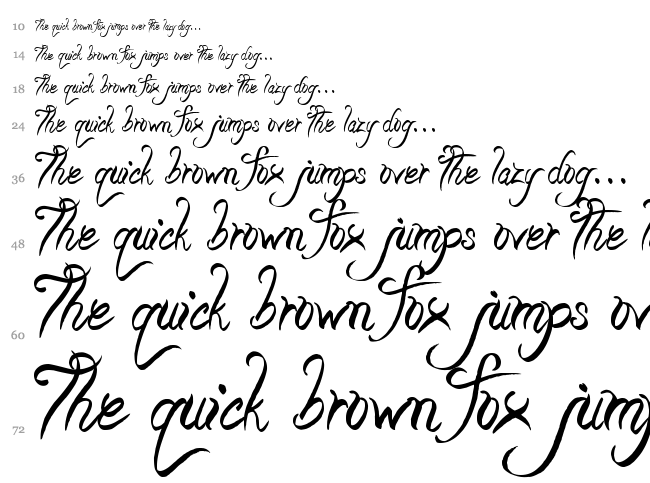 10 The quick brown fox jumps over the lazy dog...
14 The quick brown fox jumps over the lazy dog...
18 The quick brown fox jumps over the lazy dog...
24 The quick brown fox jumps over the lazy dog...
36 The quick brown fox jumps over the lazy dog...
48 The quick brown fox jumps over the l
60 The quick brown fox jumps ov
72 The quick brown fox jump